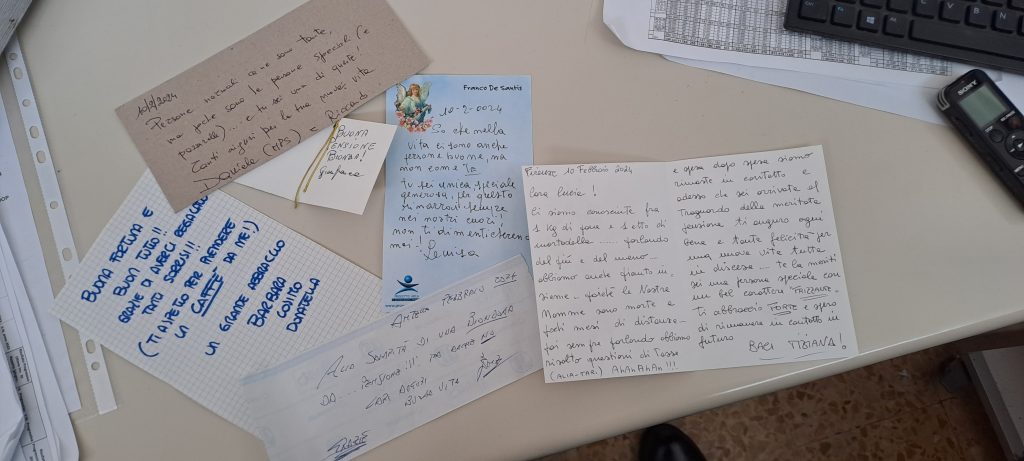 10/2/2024
Persone normali ce ne sono tante,
ma poche sono le persone speciali (e
pazzerelle) ... e tu sei una di queste!
Tanti auguri per la tua nuova vita
BUONA
PENSIONE
BIONDA!
Franco De Santis
10-2-0024
So che nella
vita ci sono anche
persone buone, ma
non come Te
tu sei unica, speciale
generosa, per questo
rimarrai sempre
nei nostri cuori,
non ti dimenticheremo
mai!
BUONA FORTUNA E
BUON TUTTO!!
GRAZIE DI AVERCI REGALATO
TANTI SORRISI!!
(TI ASPETTO PER PRENDERE
UN CAFFE' DA ME!)
UN GIGANTE ABBRACCIO
BARBARA
COSIMO
DONATELLA
FEBBRAIO 0024
ALLA SOGLIA DI UNA BIONDONA
DA .... PENSIONE!!!!
CARI AUGURI
BUONA VITA
GRAZIE
Firenze 10 Febbraio 2024
Cara Lucia!
Ci siamo conosciute fra
1 kg di pane e 1 etto di
mortadella ..... parlando
del più e del meno ...
abbiamo anche pianto in-
sieme .. poiché le Nostre
Mamme sono morte a
pochi mesi di distanza ...
poi sempre parlando abbiamo
risolto questioni di Tasse
(ALIA-TARI) AhAhAhAh!!!
e spesa dopo spesa siamo
rimaste in contatto e
adesso che sei arrivata al
Traguardo della meritata
pensione ti auguro ogni
bene e tanta felicità per
una nuova vita tutta
in discesa .... te la meriti
sei una persona speciale con
un bel carattere "FRIZZANTE".
ti abbraccio FORTE e spero
di rimanere in contatto in
futuro
BACI TIZIANA!
SONY